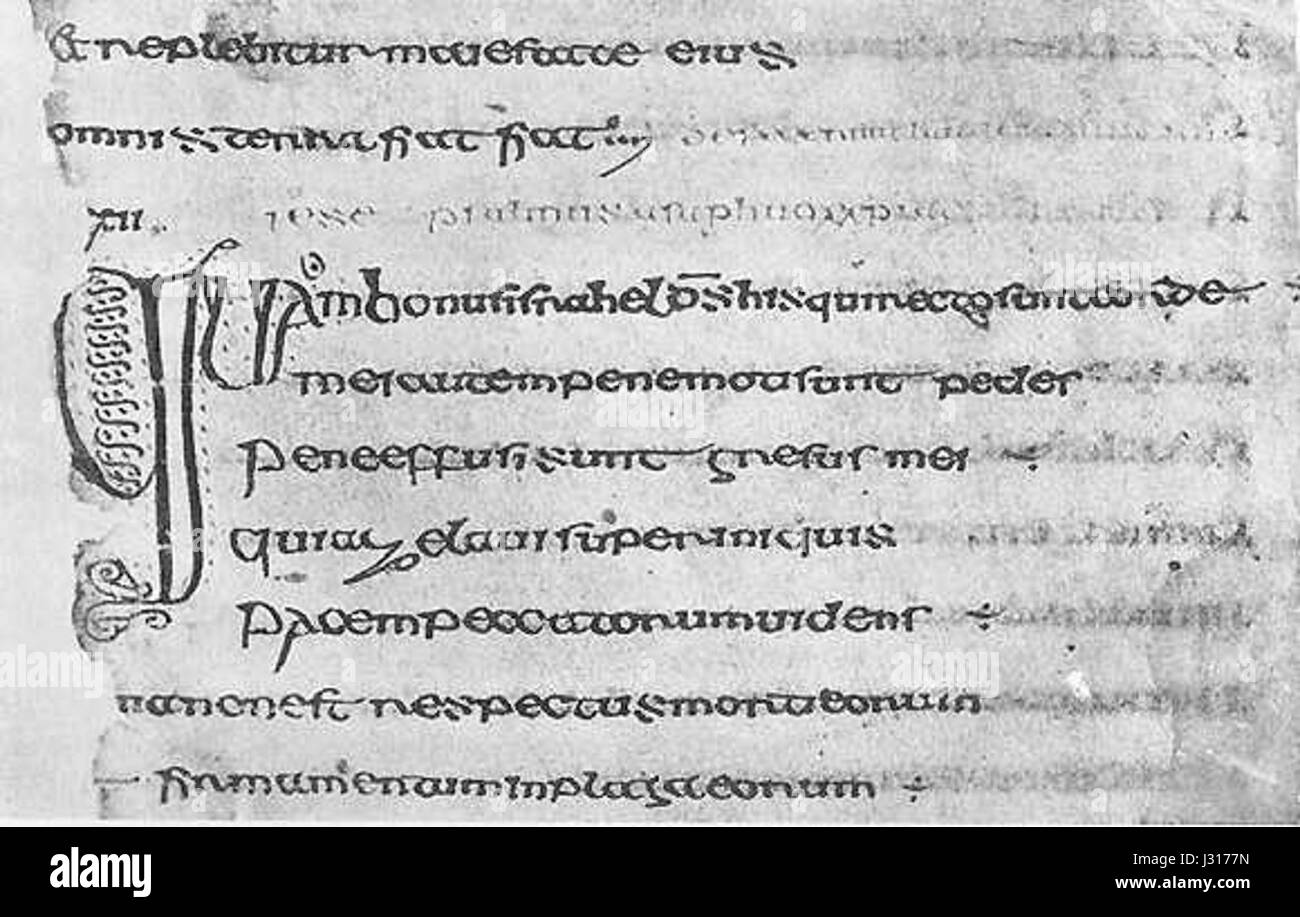 Et replebitur maiestate eius
omnis terra fiat fiat
XII.
iesse psalmus
Quam bonus israhel d̄s his qui recto sunt corde
mei autem pene moti sunt pedes
pene effusi sunt gresus mei ÷
quia zelaui super iniquis
pacem peccatorum uidens ÷
est respectus morti eorum
firmamentum in plaga eorum ÷
alamy
Image ID: J3177N
www.alamy.com